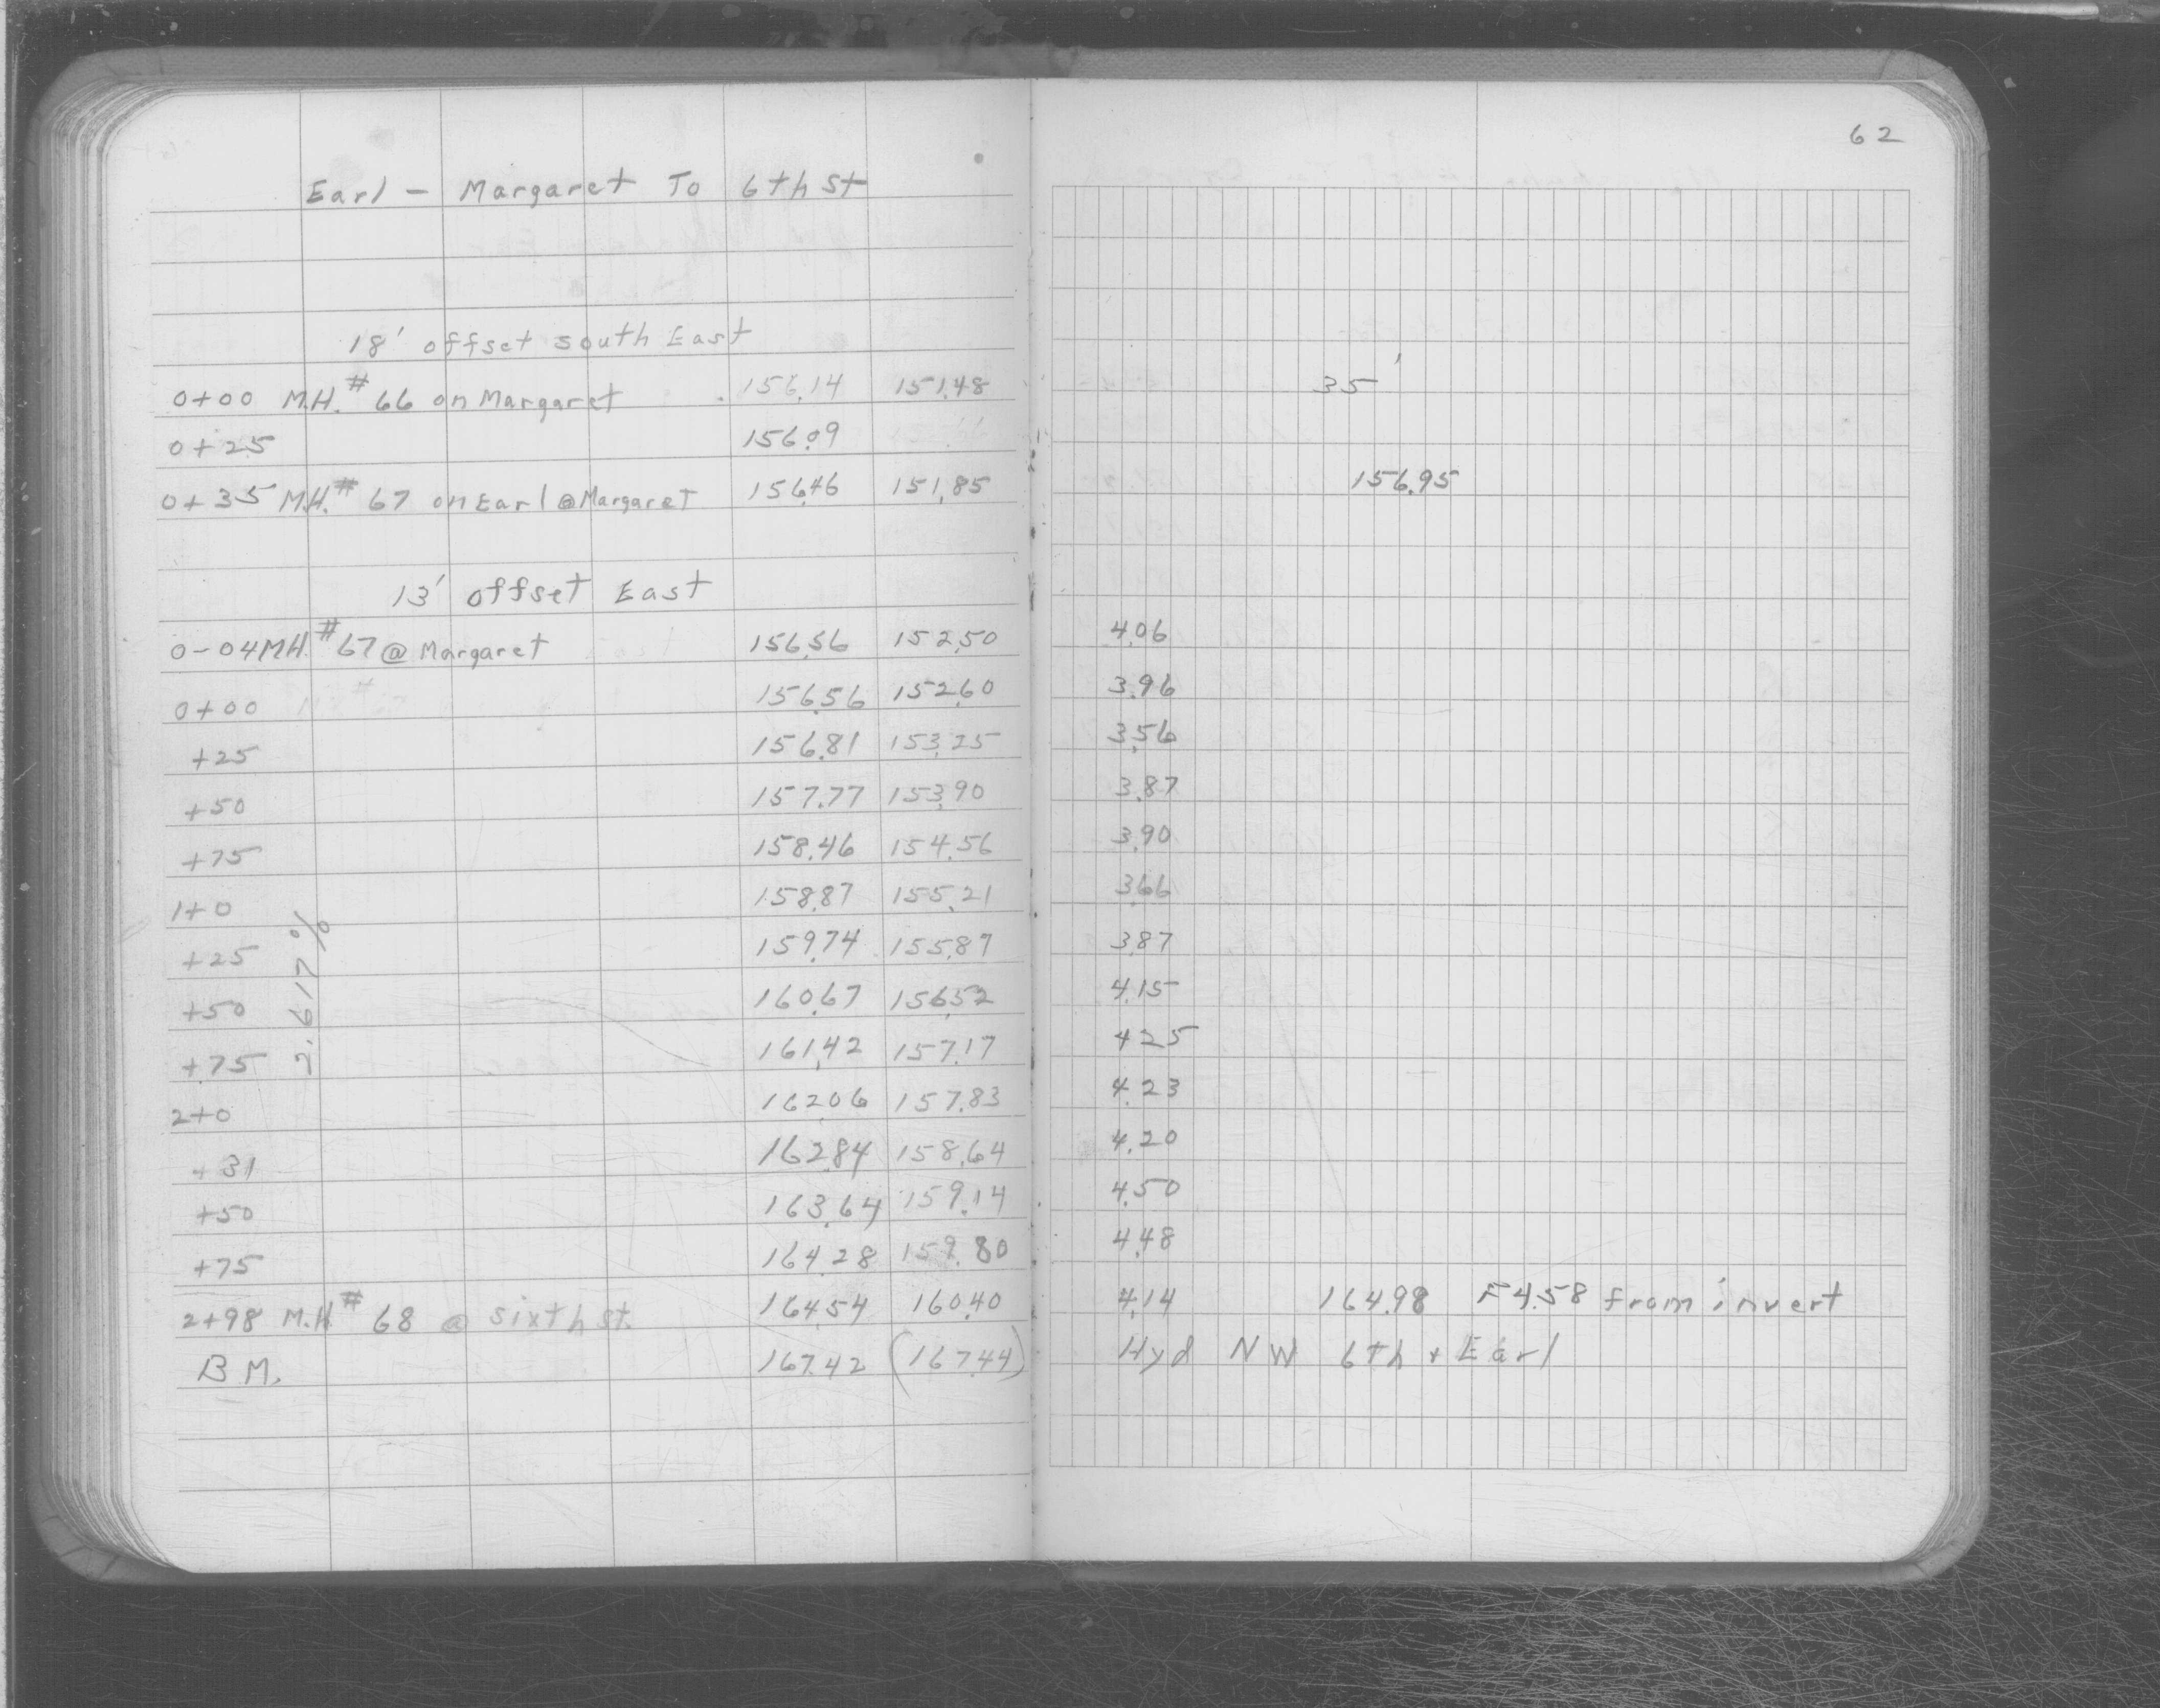 62
Earl - Margaret To 6th St
18' offset south East
0+00 M.H.# 66 on Margaret 156.14 151.48 35'
0+25 156.09
0+35 M.H.# 67 on Earl @ Margaret 156.46 151.85 156.95
13' offset East
0-04 M.H.# 67 @ Margaret 156.56 152.50 4.06
0+00 156.56 152.60 3.96
+25 156.81 153.25 3.56
+50 157.77 153.90 3.87
+75 158.46 154.56 3.90
1+0 158.87 155.21 3.66
+25 159.74 155.87 3.87
+50 160.67 156.52 4.15
+75 161.42 157.17 4.25
2+0 162.06 157.83 4.23
+31 162.84 158.64 4.20
+50 163.64 159.14 4.50
+75 164.28 159.80 4.48
2+98 M.H.# 68 @ sixth st. 164.54 160.40 4.14 164.98 F 4.58 from invert
B M. 167.42 (167.44) Hyd NW 6th + Earl
2.617%